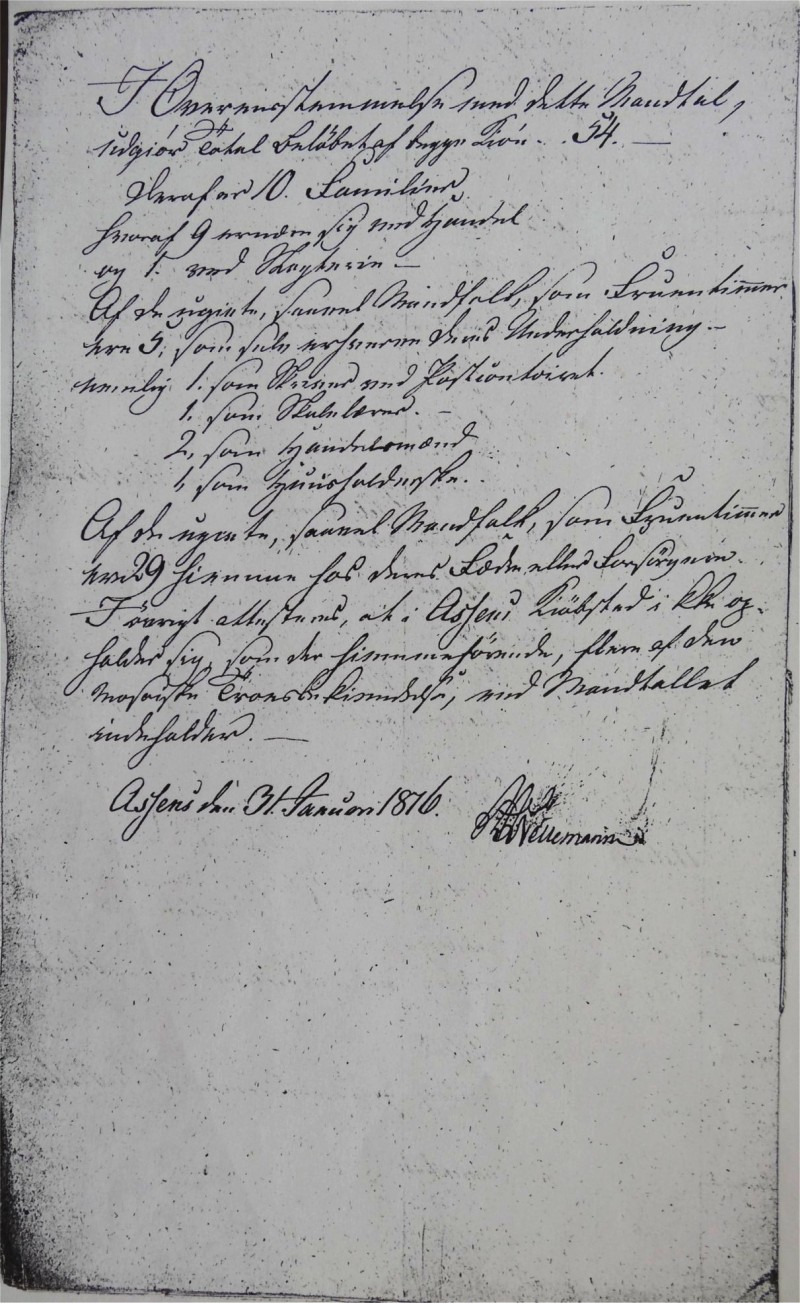 I Overensstemmelse med dette Mandtal,
udgiör Total Belöbet af begge Kiön - 54. —
Deraf er 10. Familier,
hvoraf 9 ernære sig ved Handel
og 1. ved Slagterie —
Af de ugivte, saavel Mandfolk, som Fruentimmer
ere 5, som selv erhverve deres Underholdning. —
nemlig 1. som Skriver ved Postcontoiret.
1. som Skolelærer. —
2, som Handelsmænd
1, som Huusholderske.
Af de ugivte, saavel Mandfolk, som Fruentimmer
ere 29 hiemme hos deres Fædre eller Forsörgere.
I övrigt attesteres, at i Assens Kiöbsted ikke op-
holder sig, som der hiemmehörende, flere af den
mosaiske Troesbekiendelse, end Mandtallet
indeholder. —
Assens den 31. Januari 1816.
Nellemann